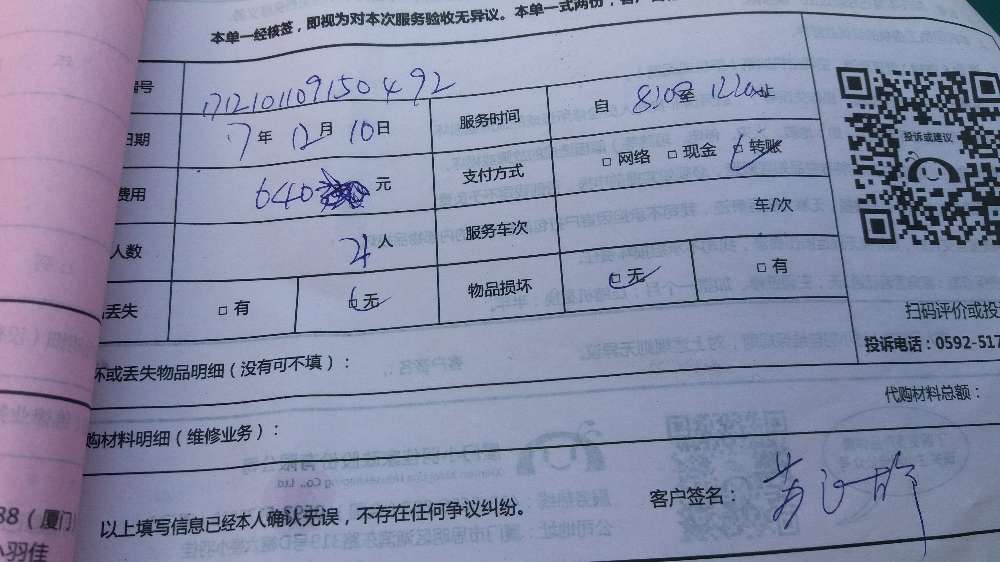 本单一经核签，即视为对本次服务验收无异议。本单一式两份，客户
编号 1712101109150492 服务时间 自 820 至 1220 止
日期 7年 12月 10日
费用 640 元 支付方式 □ 网络 □ 现金 □ 转账
人数 人 服务车次 车/次
丢失 □ 有 □ 无 物品损坏 □ 无 □ 有
投诉或建议
扫码评价或投
投诉电话：0592-517
坏或丢失物品明细（没有可不填）：
代购材料总额：
购材料明细（维修业务）：
以上填写信息已经本人确认无误，不存在任何争议纠纷。
客户签名：
88（厦门
小羽佳